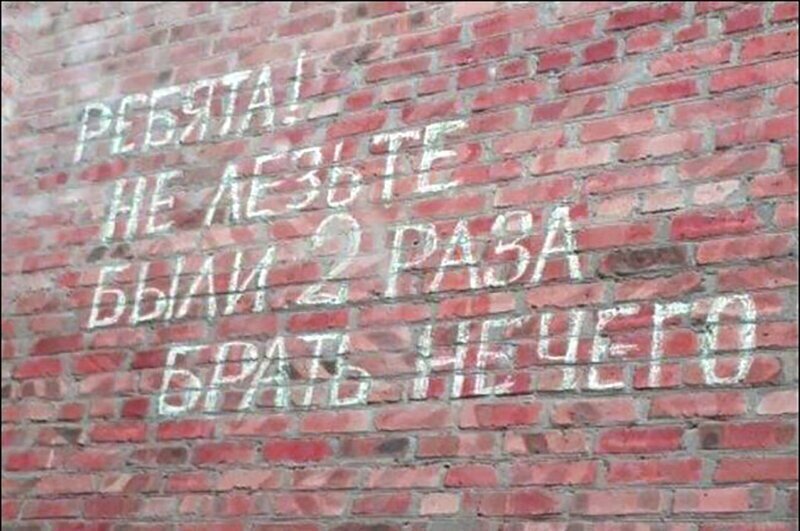 РЕБЯТА!
НЕ ЛЕЗЬТЕ
БЫЛИ 2 РАЗА
БРАТЬ НЕЧЕГО